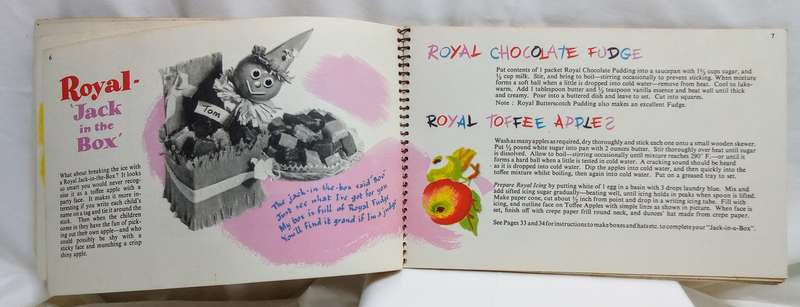 6
Royal-
'Jack
in the
Box'
What about breaking the ice with
a Royal Jack-in-the-Box? It looks
so smart you would never recog-
nise it as a toffee apple with a
party face. It makes it more in-
teresting if you write each child's
name on a tag and tie it around the
stick. Then when the children
come in they have the fun of pick-
ing out their own apple—and who
could possibly be shy with a
sticky face and munching a crisp
shiny apple.
Tom
The jack-in-the-box said 'Boo'
Just see what I've got for you
My box is full of Royal Fudge
You'll find it grand if I'm a judge
7
ROYAL CHOCOLATE FUDGE
Put contents of 1 packet Royal Chocolate Pudding into a saucepan with 1½ cups sugar, and
½ cup milk. Stir, and bring to boil—stirring occasionally to prevent sticking. When mixture
forms a soft ball when a little is dropped into cold water—remove from heat. Cool to luke-
warm. Add 1 tablespoon butter and ½ teaspoon vanilla essence and beat well until thick
and creamy. Pour into a buttered dish and leave to set. Cut into squares.
Note : Royal Butterscotch Pudding also makes an excellent Fudge.
ROYAL TOFFEE APPLES
Wash as many apples as required, dry thoroughly and stick each one onto a small wooden skewer.
Put ½ pound white sugar into pan with 2 ounces butter. Stir thoroughly over heat until sugar
is dissolved. Allow to boil—stirring occasionally until mixture reaches 290° F.—or until it
forms a hard ball when a little is tested in cold water. A cracking sound should be heard
as it is dropped into cold water. Dip the apples into cold water, and then quickly into the
toffee mixture whilst boiling, then again into cold water. Put on a greased tray to set.
Prepare Royal Icing by putting white of 1 egg in a basin with 3 drops laundry blue. Mix and
add sifted icing sugar gradually—beating well, until icing holds in peaks when spoon is lifted.
Make paper cone, cut about ½ inch from point and drop in a writing icing tube. Fill with
icing, and outline face on Toffee Apples with simple lines as shown in picture. When face is
set, finish off with crepe paper frill round neck, and dunces' hat made from crepe paper.
See Pages 33 and 34 for instructions to make boxes and hats etc. to complete your "Jack-in-a-Box".